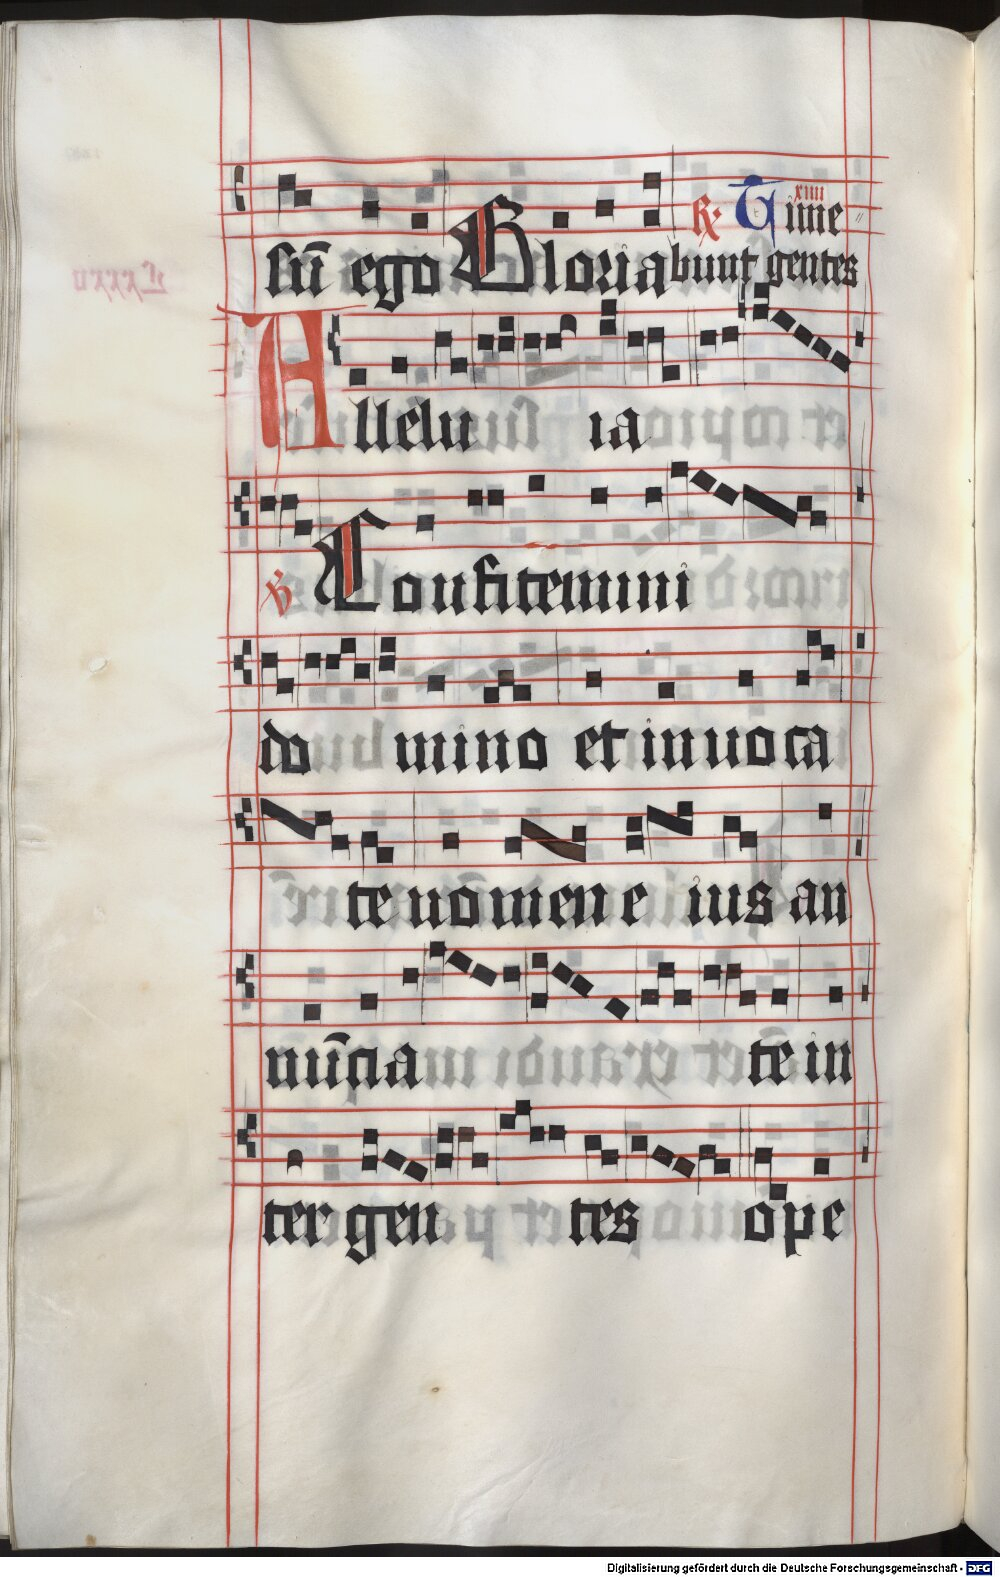 ℟. Time xiiii
sū ego Gloria bunt gentes
Allelu ia
℣ Confitemini
do mino et inuoca
te nomen e ius an
nūcia te in
ter gen tes ope
Digitalisierung gefördert durch die Deutsche Forschungsgemeinschaft - DFG